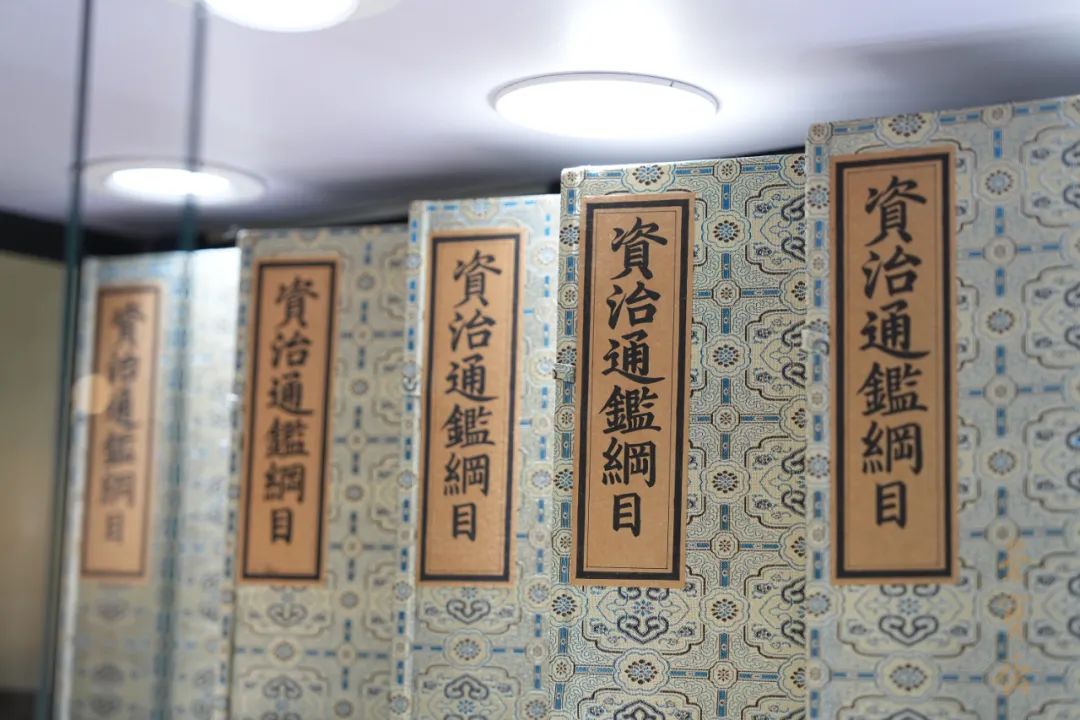 資治通鑑綱目
資治通鑑綱目
資治通鑑綱目
資治通鑑綱目
資治通鑑綱目